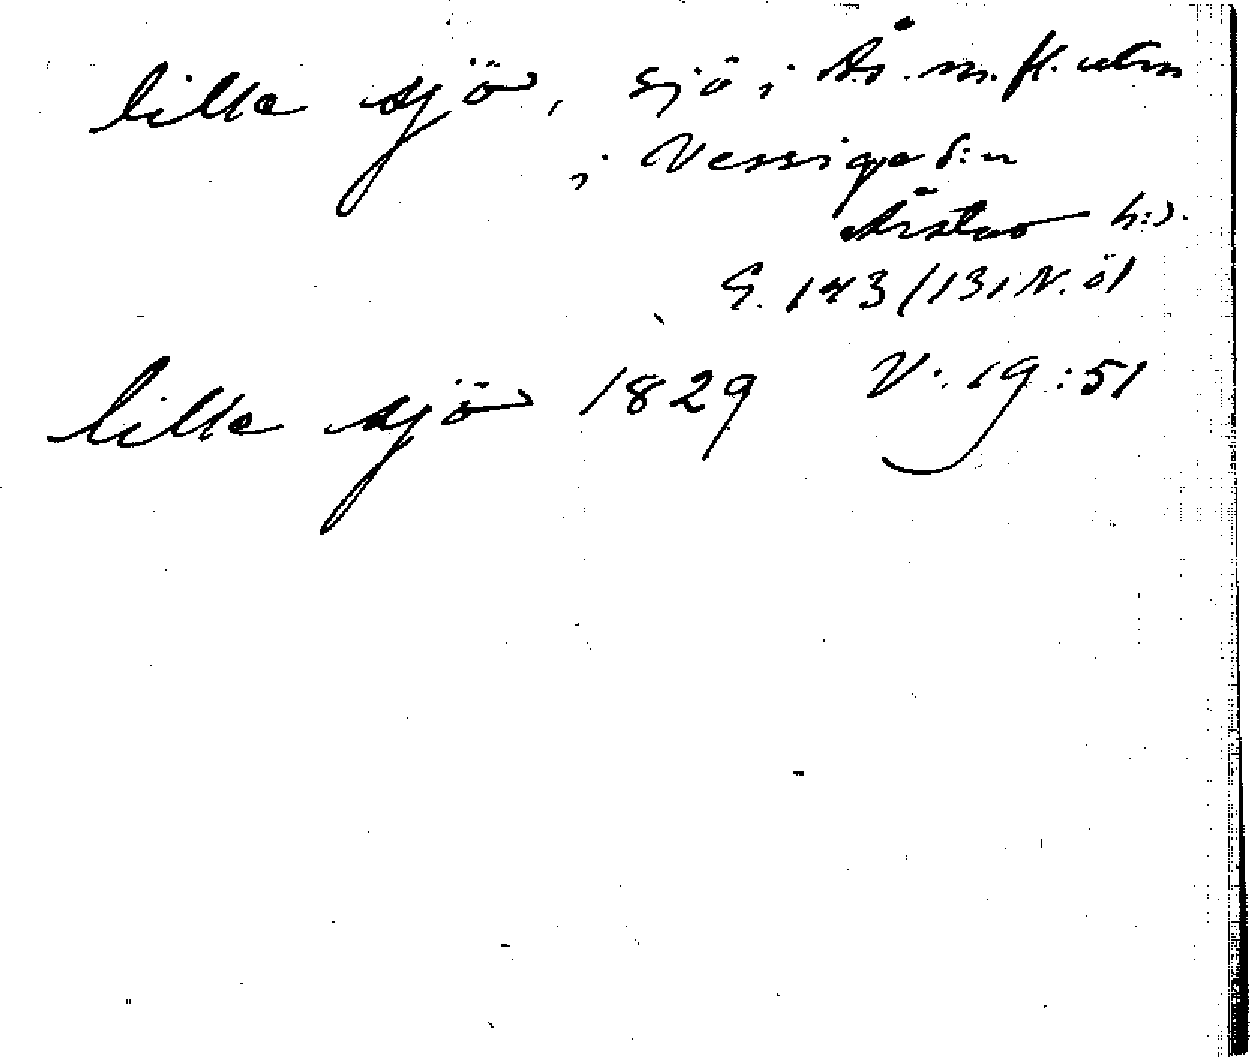 lilla sjö, sjö i Ås m. fl. utm
i Vessige s:n
Årstad h:d.
S. 143/131 N. öl
lilla sjö 1829 V. 19:51